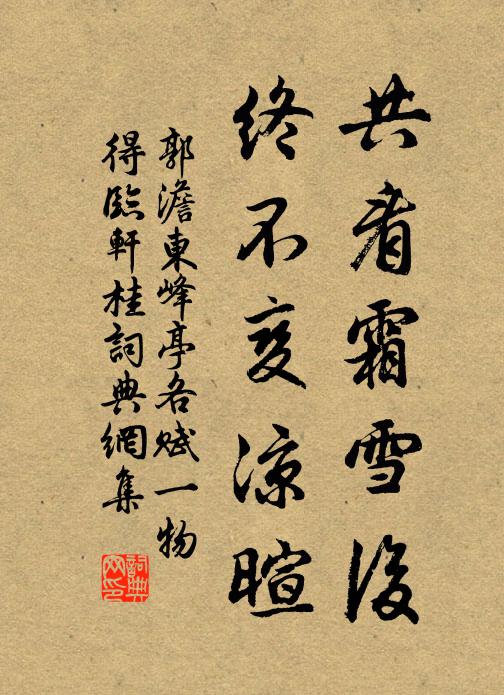 共看霜雪後
終不變涼暄
郭澹東峰亭各賦一物
得臨軒桂詞典網集
詞典网印